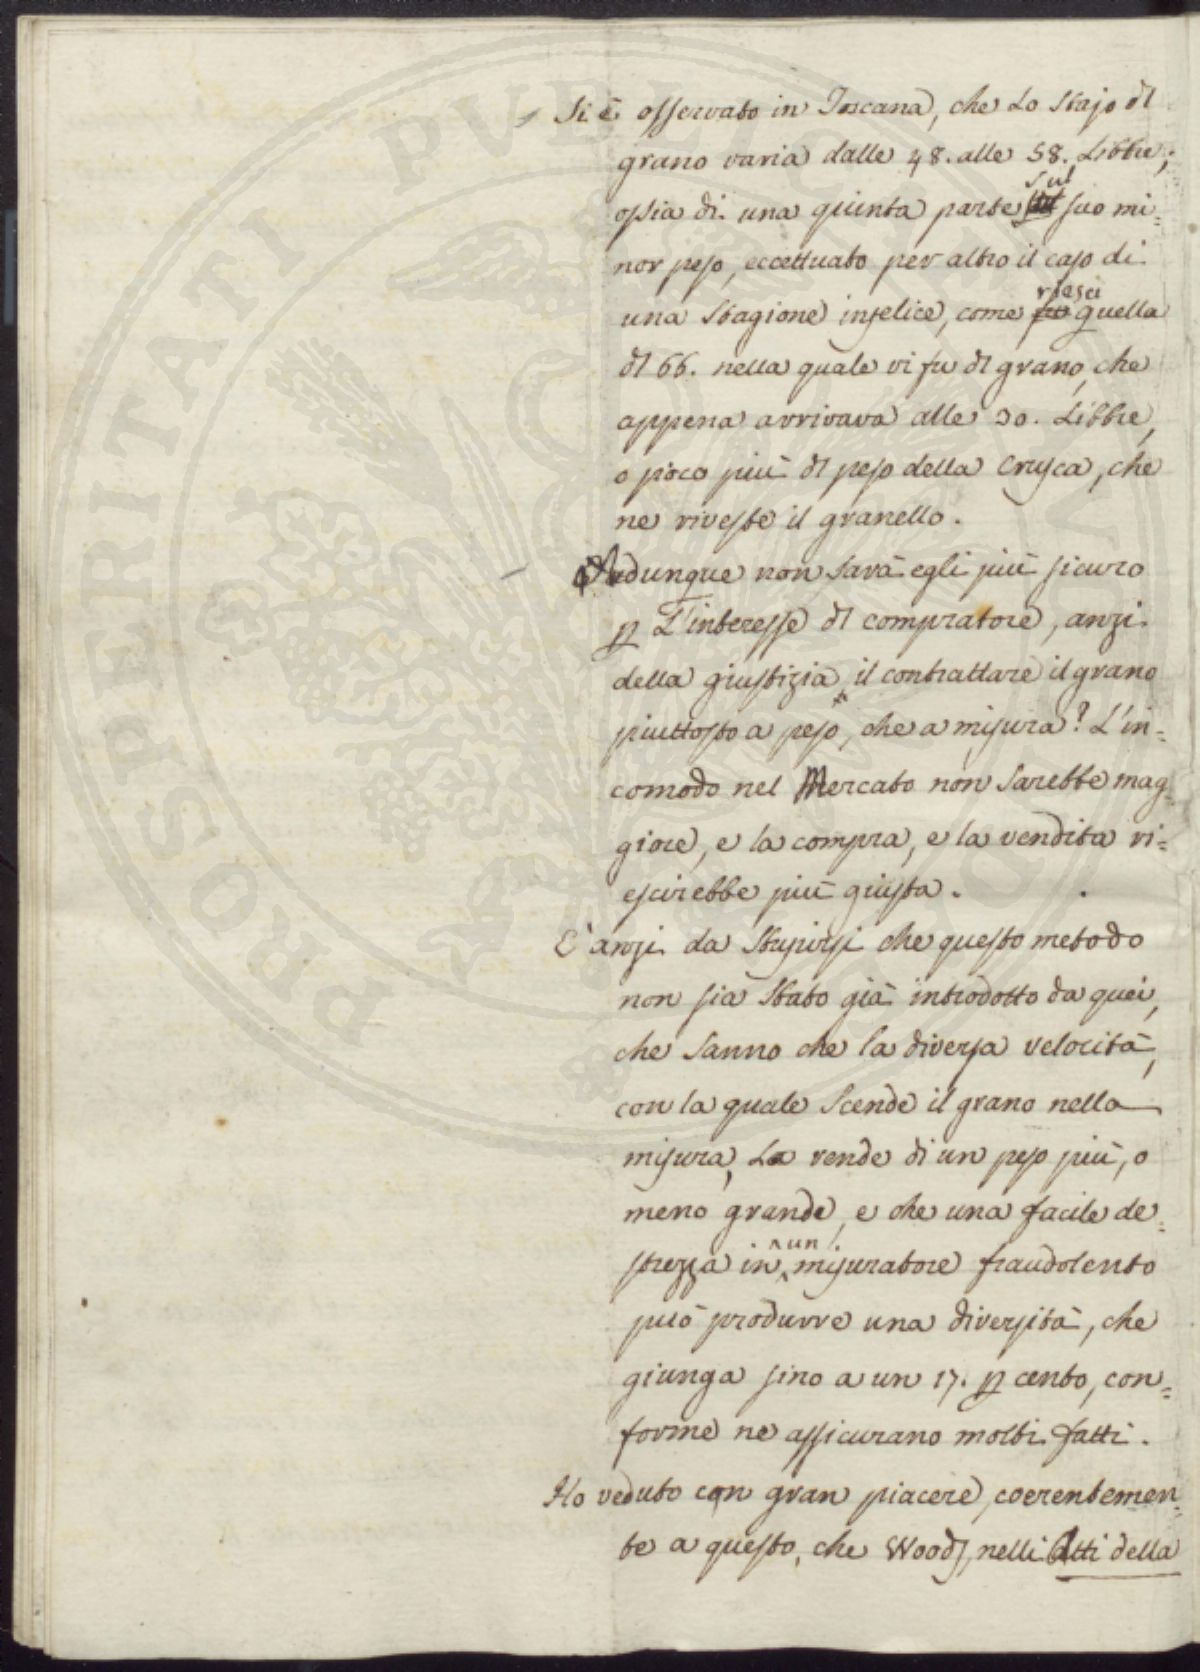 Si è osservato in Toscana, che Lo Stajo dl
grano varia dalle 48. alle 58. Libbre,
ossia di una quinta parte sul suo mi=
nor peso, eccettuato per altro il caso di
una Stagione infelice, come fu riescì quella
dl 66. nella quale vi fu dl grano, che
appena arrivava alle 30. Libbre,
o poco più dl peso della Crusca, che
ne riveste il granello.
Adunque non sarà egli più sicuro
p L'interesse dl compratore, anzi
della giustizia, il contrattare il grano
piuttosto a peso, che a misura? L'in=
comodo nel Mercato non sarebbe mag=
giore, e la compra, e la vendita ri=
escirebbe più giusta.
E' anzi da stupirsi che questo metodo
non sia stato già introdotto da quei,
che sanno che la diversa velocità,
con la quale scende il grano nella
misura, La rende di un peso più, o
meno grande, e che una facile de=
strezza in un misuratore fraudolento
può produrre una diversità, che
giunga sino a un 17. p cento, con=
forme ne assicurano molti fatti.
Ho veduto con gran piacere, coerentemen=
te a questo, che Wood, nelli Atti della
PROSPERITATI PUBLICAE